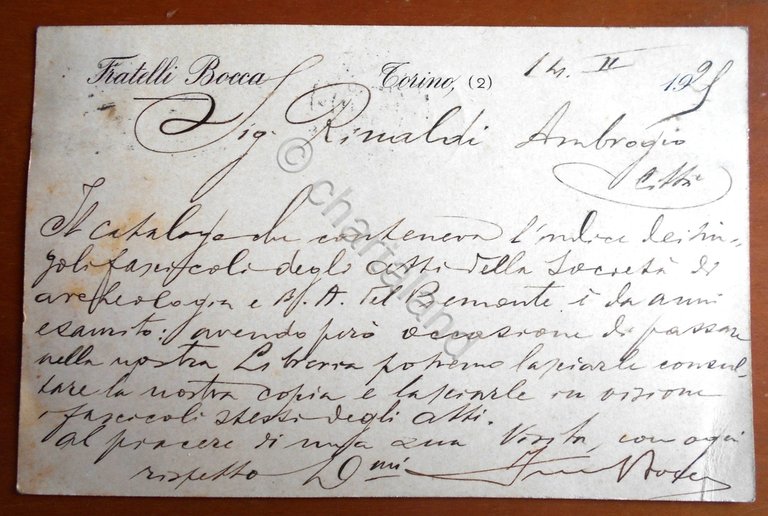 Fratelli Bocca Torino, (2) 14. II 1925
Sig. Rinaldi Ambrogio
Città
Il catalogo che conteneva l'indice dei sin-
goli fascicoli degli Atti della Società di
archeologia e B. A. del Piemonte è da anni
esaurito: avendo però occasione di passare
nella nostra Libreria potremo lasciarle consul-
tare la nostra copia e lasciarle in visione
i fascicoli stessi degli Atti.
Al piacere di una sua visita, con ogni
rispetto Dmi Bocca
© chartaland